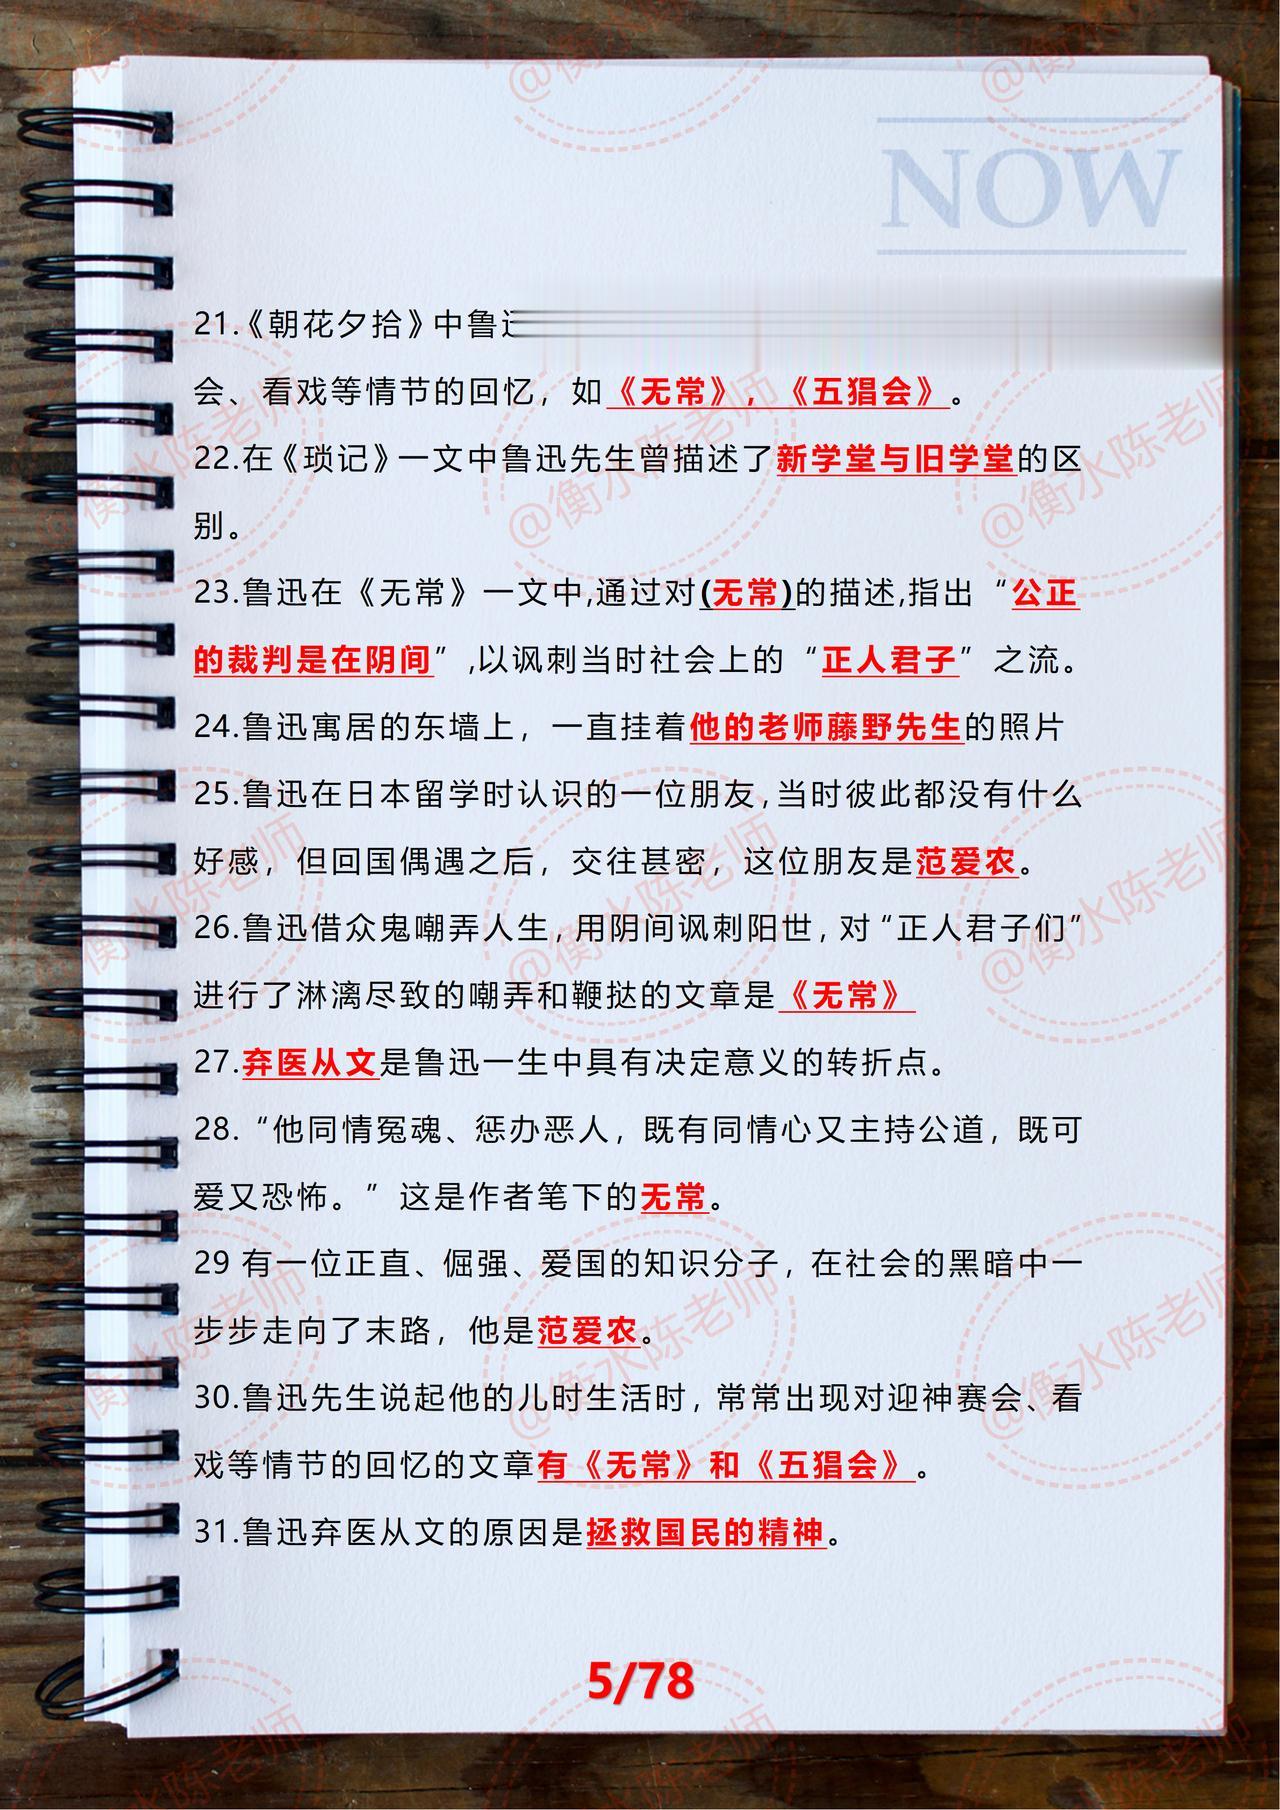 NOW
21.《朝花夕拾》中鲁
会、看戏等情节的回忆，如《无常》，《五猖会》。
22.在《琐记》一文中鲁迅先生曾描述了新学堂与旧学堂的区
别。
23.鲁迅在《无常》一文中,通过对(无常)的描述,指出“公正
的裁判是在阴间”,以讽刺当时社会上的“正人君子”之流。
24.鲁迅寓居的东墙上，一直挂着他的老师藤野先生的照片
25.鲁迅在日本留学时认识的一位朋友,当时彼此都没有什么
好感，但回国偶遇之后，交往甚密，这位朋友是范爱农。
26.鲁迅借众鬼嘲弄人生,用阴间讽刺阳世,对“正人君子们”
进行了淋漓尽致的嘲弄和鞭挞的文章是《无常》
27.弃医从文是鲁迅一生中具有决定意义的转折点。
28.“他同情冤魂、惩办恶人，既有同情心又主持公道，既可
爱又恐怖。”这是作者笔下的无常。
29 有一位正直、倔强、爱国的知识分子，在社会的黑暗中一
步步走向了末路，他是范爱农。
30.鲁迅先生说起他的儿时生活时，常常出现对迎神赛会、看
戏等情节的回忆的文章有《无常》和《五猖会》。
31.鲁迅弃医从文的原因是拯救国民的精神。
5/78
@衡水陈老师